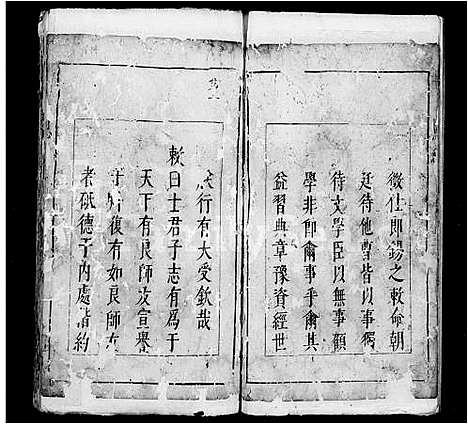 徵仕郎錫之敕命朝
廷待他曹皆以事獨
待文學臣以無事顧
學非即肄事乎肄其
益習典章豫資經世
行有大受欽哉
敕曰士君子志有為于
天下有良師友宣譽
復有如良師友
者砥德予內處詣約